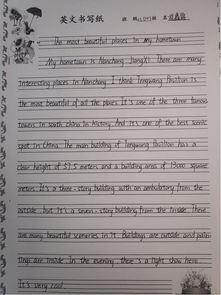 英文书写纸
The most beautiful places in my hometown
My hometown is Nanchang Jiangxi. There are many
interesting places in Nanchang. I think Tengwang Pavilion is
the most beautiful of all the places. It's one of the three famous
towers in south china in history. And it's one of the best scenic
spot in China. The main building of Tengwang Pavilion has a
clear height of 57.5 meters and a building area of 13000 square
meters. It's a three-story building with an ambulatory from the
outside, but it's a seven-story building from the inside. There
are many beautiful sceneries in it. Buildings are outside and pain
tings are inside. In the evening, there's a light show here.
It's very cool.